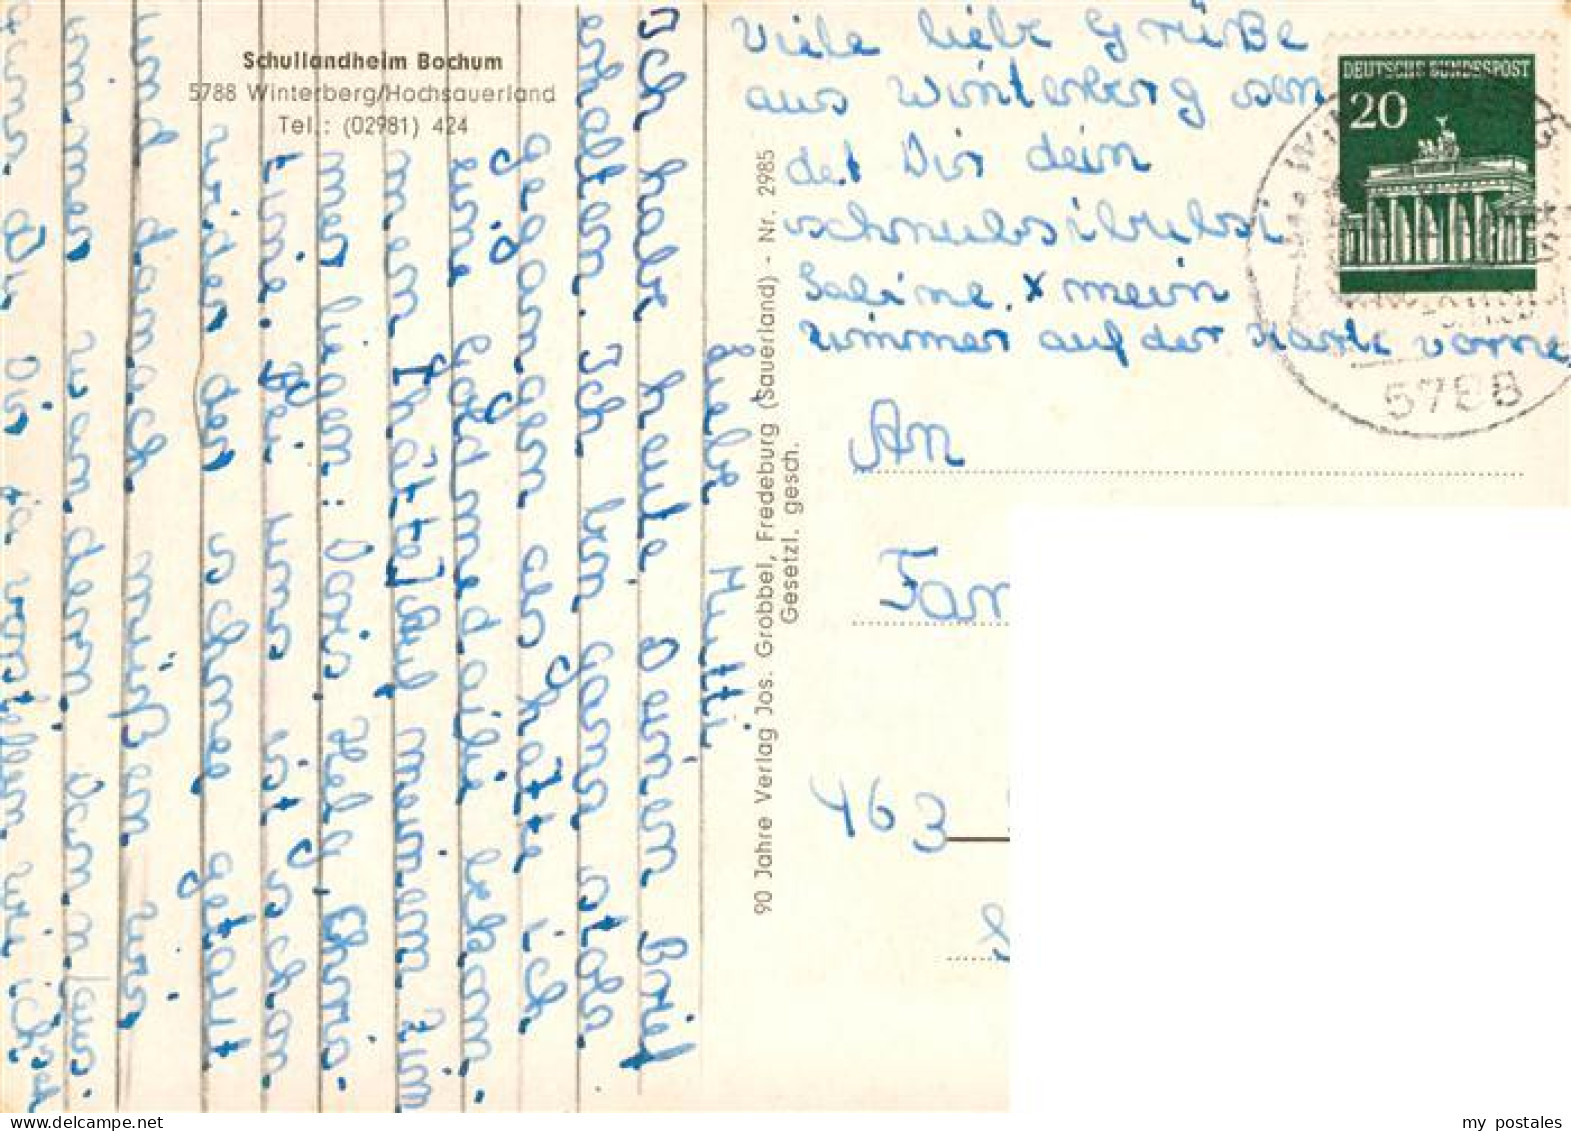 Schullandheim Bochum
5788 Winterberg/Hochsauerland
Tel.: (02981) 424
Liebe Mutti
Ich habe heute Deinen Brief
erhalten. Ich bin ganz stolz
gegangen als hätte ich
eine Goldmedaille bekom-
men [hätte]. Auf meinem Zim
mer liegen: Doris, Helg, Chris-
tiane. Bei uns ist schon
wieder der schnee getaut
und danach müßen wir
immer wandern. Dann/aus-
90 Jahre Verlag Jos. Grobbel, Fredeburg (Sauerland) - Nr. 2985
Gesetzl. gesch.
Viele liebe Grüße
aus Winterberg sen
det Dir dein
schnubsibubsi
Sabine. x mein
Zimmer auf der Karte vorne.
DEUTSCHE BUNDESPOST
20
5788
An
Fam
463
my_postales
delcampe.net